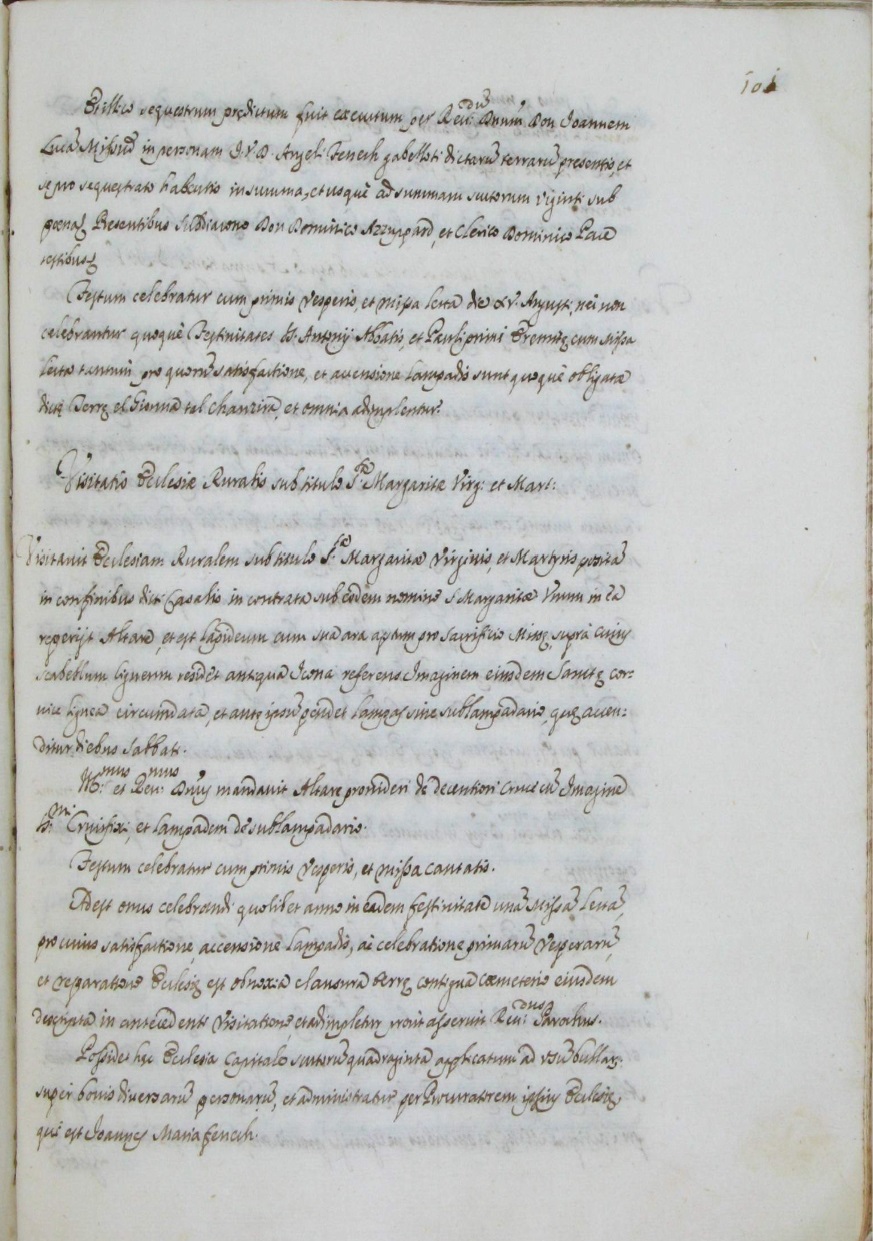 101
Et illico sequestrum prędictum fuit executum per Reu: dum Dnum Don Joannem
Lucā Mifsud in personam J. V. D. Angeli Fenech gabelloti dictarū terrarū presentis, et
se pro sequestrato habentis in summa, et usquè ad summam scutorum viginti sub
poena Presentibus Subdiacono Don Dominico Azzuppard, et Clerico Dominico Pace
testibus
Festum celebratur cum primis Vesperis, et missa lecta die xv. Augusti, nec non
celebrantur quoquè Festiuitates S. Antonij Abbatis, et Pauli primi Eremitę cum Missa
lecta tantum pro quorū satisfactione, et accensione lampadis sunt quoquè obligatæ
dictę Terrę el Gionna tal chanzira, et omnia adimplentur.
Visitatio Ecclesiæ Ruralis sub titulo S.tæ Margaritæ Virg: et Mart:
Visitauit Ecclesiam Ruralem sub titulo S.tæ Margaritæ Virginis, et Martyris positā
in confinibus dicti Casalis in contrata sub eodem nomine S. Margaritæ Vnum in eā
reperijt Altare, et est lapideum cum sua ara aptum pro sacrificio Missę, suprà cuius
scabellum ligneum residet antiqua Icona referens Imaginem eiusdem Sanctę cor:
nice lignea circumdata, et antę ipsū pendet lampas sine sublampadario, quę accen:
ditur diebus Sabbati.
Ill: mus et Reu: mus Dnus mandauit Altare prouideri de decentiori Cruce cū Imagine
S. mi Crucifixi, et lampadem de sublampadario.
Festum celebratur cum primis Vesperis, et missa cantatis.
Adest onus celebrandi quolibet anno in eadem festiuitate unā Missā lectā,
pro cuius satisfactione, accensione lampadis, ac celebratione primarū Vesperarū,
et reparatione Ecclesię est obnoxia clausura terrę contigua coemeterio eiusdem
descripta in antecedenti Visitatione, et adimpletur prout asseruit Reu: dus Parochus.
Possidet hęc Ecclesia Capitale scutorū quadraginta applicatum ad vsū bullar:
super bonis diuersarū personarū, et administratur per Procuratorem ipsius Ecclesię
qui est Joannes Maria Fenech.